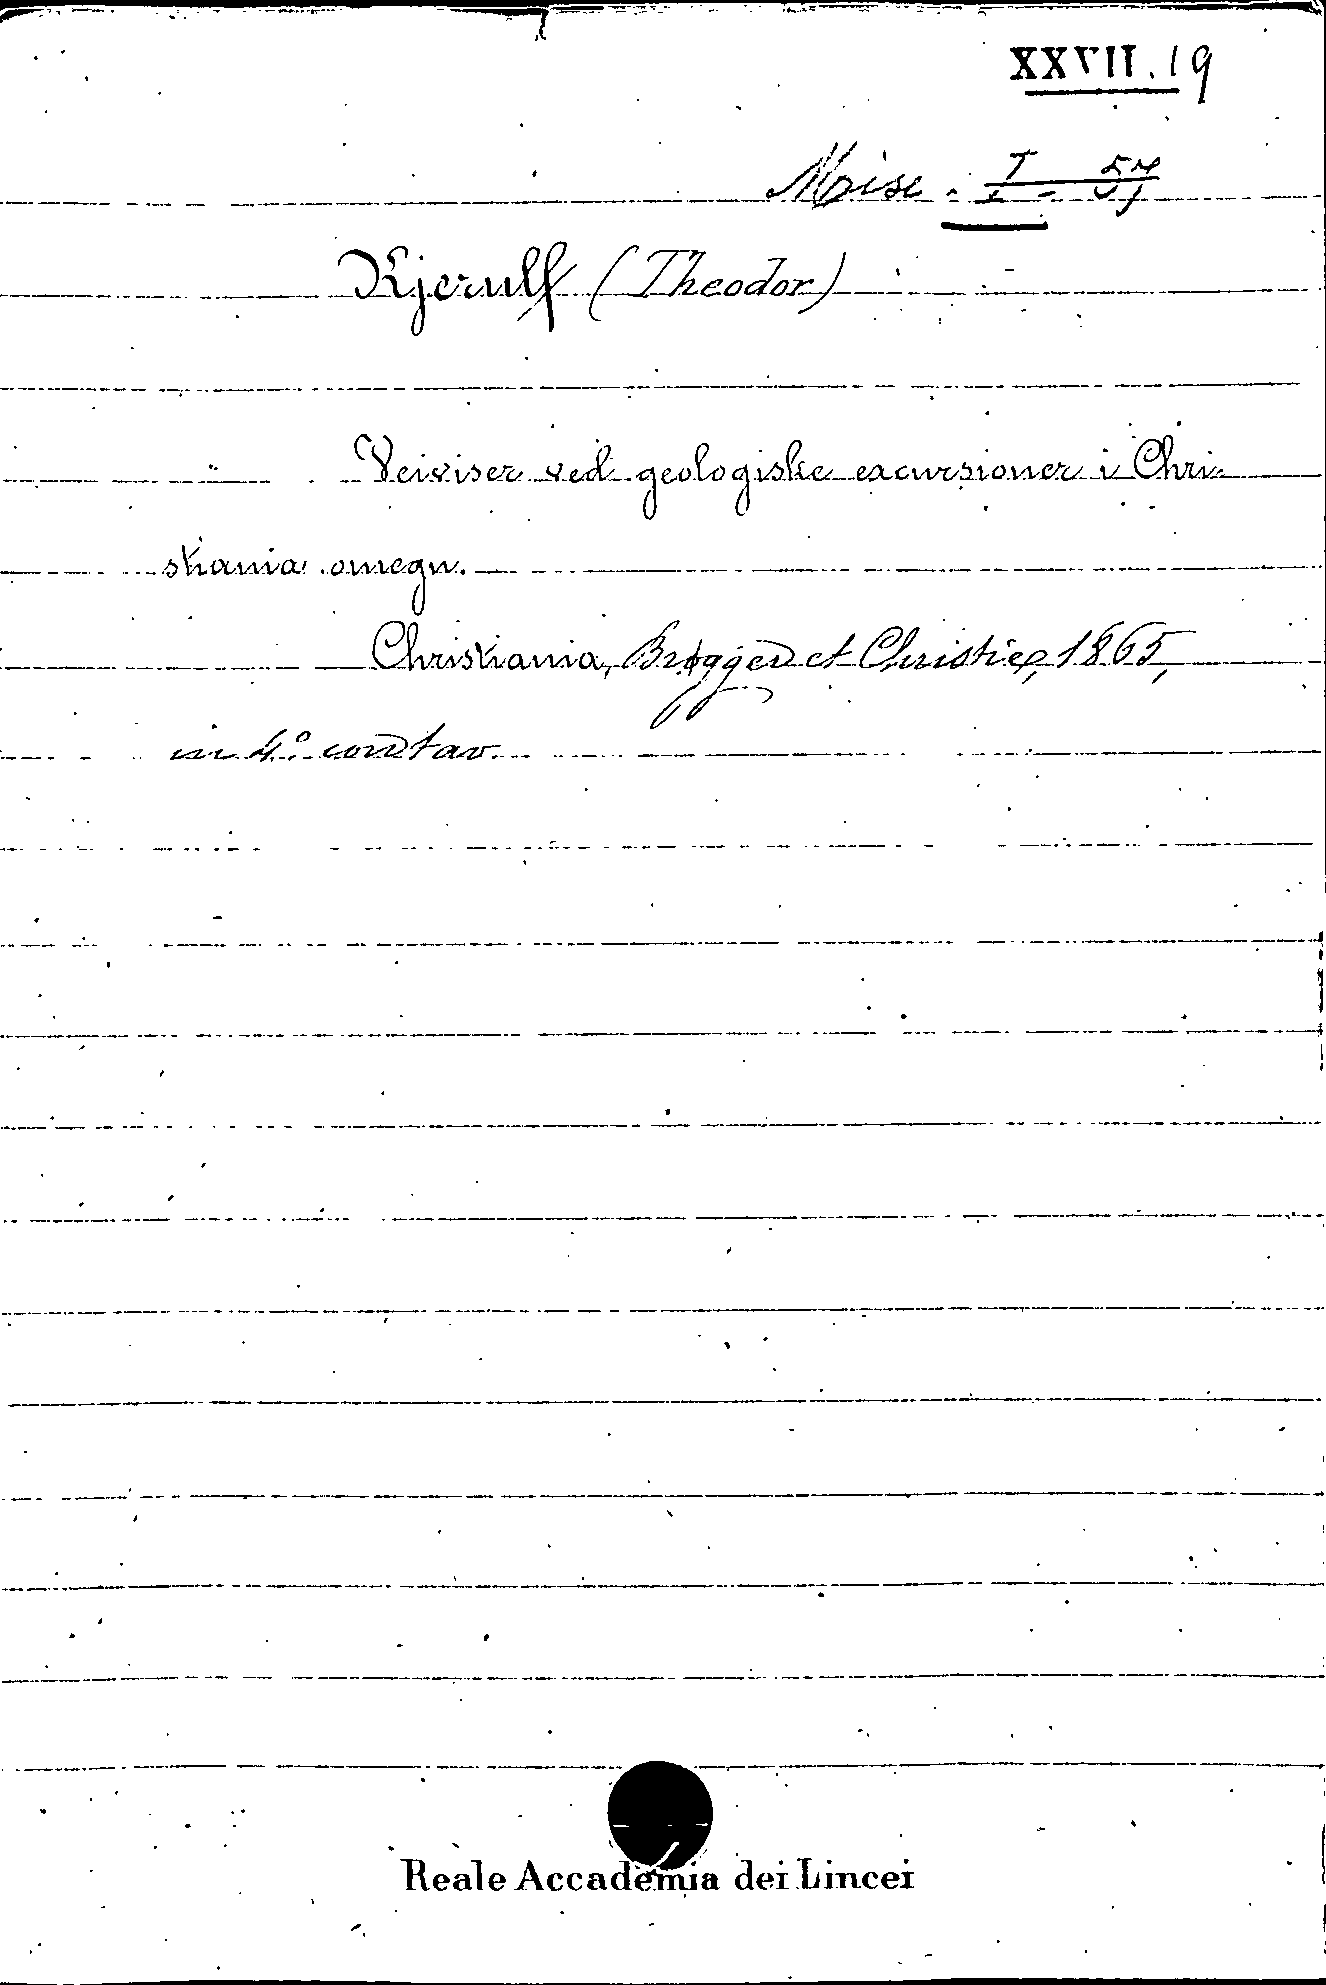 XXVII.19
Misc.
Kjerulf (Theodor)
Veiviser ved geologiske excursioner i Chri-
stiania omegn.
Christiania, Brøgger et Christie, 1865,
in 4.° con tav.
Reale Accademia dei Lincei